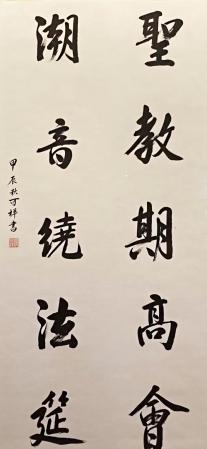 聖教期高會
潮音繞法筵
甲辰秋可祥書